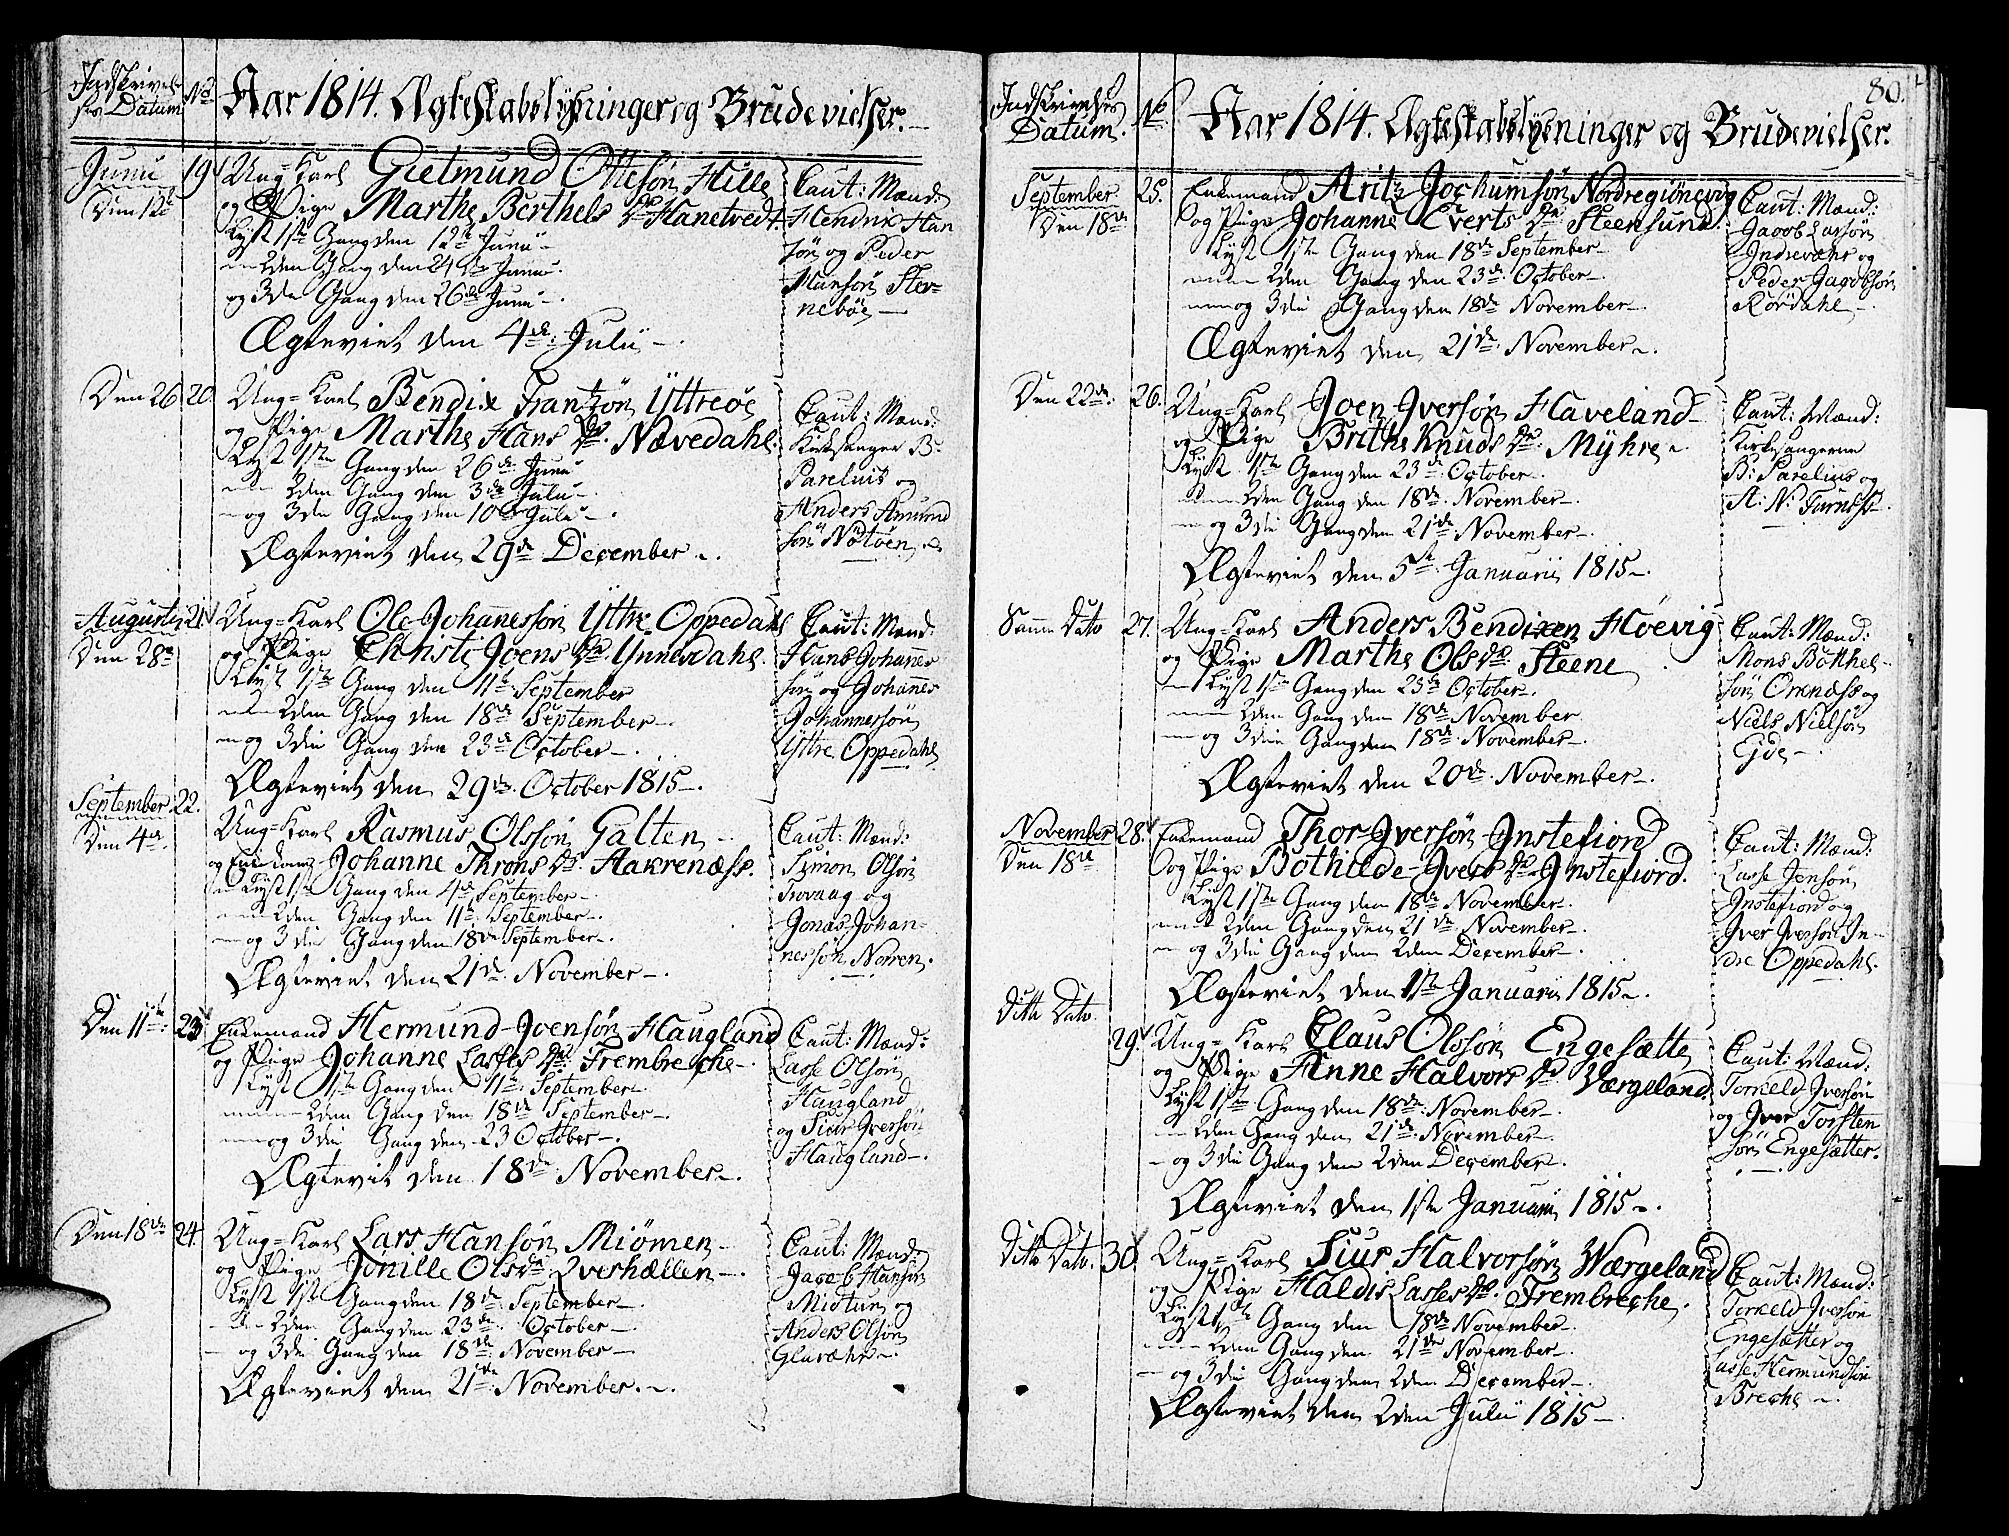 Indskrivel-
ses Datum
No
Aar 1814. Ægteskabslysninger og Brudevielser.
Junii
Den 12te
19
Ung-Karl Gietmund Ottesön Hille
og Pige Marthe Berthels Dr Hanetvedt.
Lyst 1ste Gang den 12te Junii
2den Gang den 24de Junii
og 3die Gang den 26de Junii
Ægteviet den 4de Julii
Caut: Mænd:
Hendrik Han
sön og Peder
Monsön Ster-
neböe
Den 26
20
Ung-Karl Bendix Frantzön Yttreöe
og Pige Marthe Hans Dr. Nævedahl.
Lyst 1ste Gang den 26de Junii
2den Gang den 3die Julii
og 3die Gang den 10de Julii
Ægteviet den 29de December
Caut: Mænd:
Kirkesanger B:
Pareluis og
Anders Amund
sön Nötöen
Augusti
Den 28de
21
Ung-Karl Ole Johannessön Yttre Oppedahl
og Pige Christi Joens Dr Ynnesdahl.
Lyst 1ste Gang den 11te September
2den Gang den 18de September
og 3die Gang den 23de October
Ægteviet den 29de October 1815.
Caut: Mænd:
Hans Johannes
sön og Johannes
Johannessön
Yttre Oppedahl
September
Den 4de
22.
Ung-Karl Rasmus Olssön Galten
og Johanne Throns Dr. Aakrenæss.
Lyst 1ste Gang den 4de September
2den Gang den 11te September
og 3die Gang den 18de September
Ægteviet den 21de November
Caut: Mænd:
Simon Olsön
Trovaag og
Jonas Johan-
nessön Norren.
Den 11te
23
Enkemand Hermund Joensön Haugland
og Pige Johanne Lasses Dr. Frembreche
Lyst 1ste Gang den 11te September
2den Gang den 18de September
og 3die Gang den 23 October
Ægteviet den 18de November
Caut: Mænd:
Lasse Olsön
Haugland
og Siur Iversön
Haugland
Den 18de
24.
Ung-Karl Lars Hansön Miömen
og Pige Jonille Ols Dr. Qverhællen
Lyst 1ste Gang den 18de September
2den Gang den 23de October
og 3die Gang den 18de November
Ægteviet den 21de November.
Caut: Mænd:
Jacob Hansön
Midtun og
Anders Olsön
Glavæhr
80.
Indskrivelses
Datum.
No
Aar 1814. Ægteskabslysninger og Brudevielser.
September
Den 18de
25.
Enkemand Aritz Jochumsön Nordregiönevig
og Pige Johanne Everts Dr Steensund.
Lyst 1ste Gang den 18de September
2den Gang den 23de October
og 3die Gang den 18de November
Ægteviet den 21de November
Caut: Mænd:
Jacob Larsön
Indrevæhr og
Peder Jacobsön
Rördahl
Den 22de:
26.
Ung-Karl Joen Iversön Haveland
og Pige Brithe Knuds Dr: Myhre
Lyst 1ste Gang den 23de October
2den Gang den 18de November
og 3die Gang den 21de November
Ægteviet den 5te Januarii 1815
Caut: Mænd:
Kirkesangerne
B: Parelius og
A: N: Turness
Samme Dato
27.
Ung-Karl Anders Bendixen Höevig
og Pige Marthe Ols Dr. Steene
Lyst 1ste Gang den 23de October
2den Gang den 18de November
og 3die Gang den 18de November
Ægteviet den 20de November
Caut: Mænd:
Mons Botthel-
sön Ornæss og
Niels Nielsön
Eide
November
Den 18de
28.
Enkemand Thor Iversön Instefiord
og Pige Bothilde Ivers Dr Instefiord.
Lyst 1ste Gang den 18de November
2den Gang den 21de November
og 3die Gang den 2den December
Ægteviet den 1ste Januarii 1815.
Caut: Mænd:
Lasse Jensön
Instefiord og
Iver Iversön In-
dre Oppedahl.
Ditto Dato.
29.
Ung-Karl Claus Olssön Engesætte
og Pige Anne Halvors Dr Værgeland.
Lyst 1ste Gang den 18de November
2den Gang den 21de November
og 3die Gang den 2den December
Ægteviet den 1ste Januarii 1815
Caut: Mænd:
Torkeld Iversön
og Iver Torsten
sön Engesætter.
Ditto Dato.
30
Ung-Karl Siur Halvorsön Wærgeland
og Pige Haldis Lasses Dr. Frembreche.
Lyst 1ste Gang den 18de November
2den Gang den 21de November
og 3die Gang den 2den December
Ægteviet den 2den Julii 1815
Caut: Mænd:
Torkeld Iversön
Engesætter og
Lasse Hermundsön
Breche